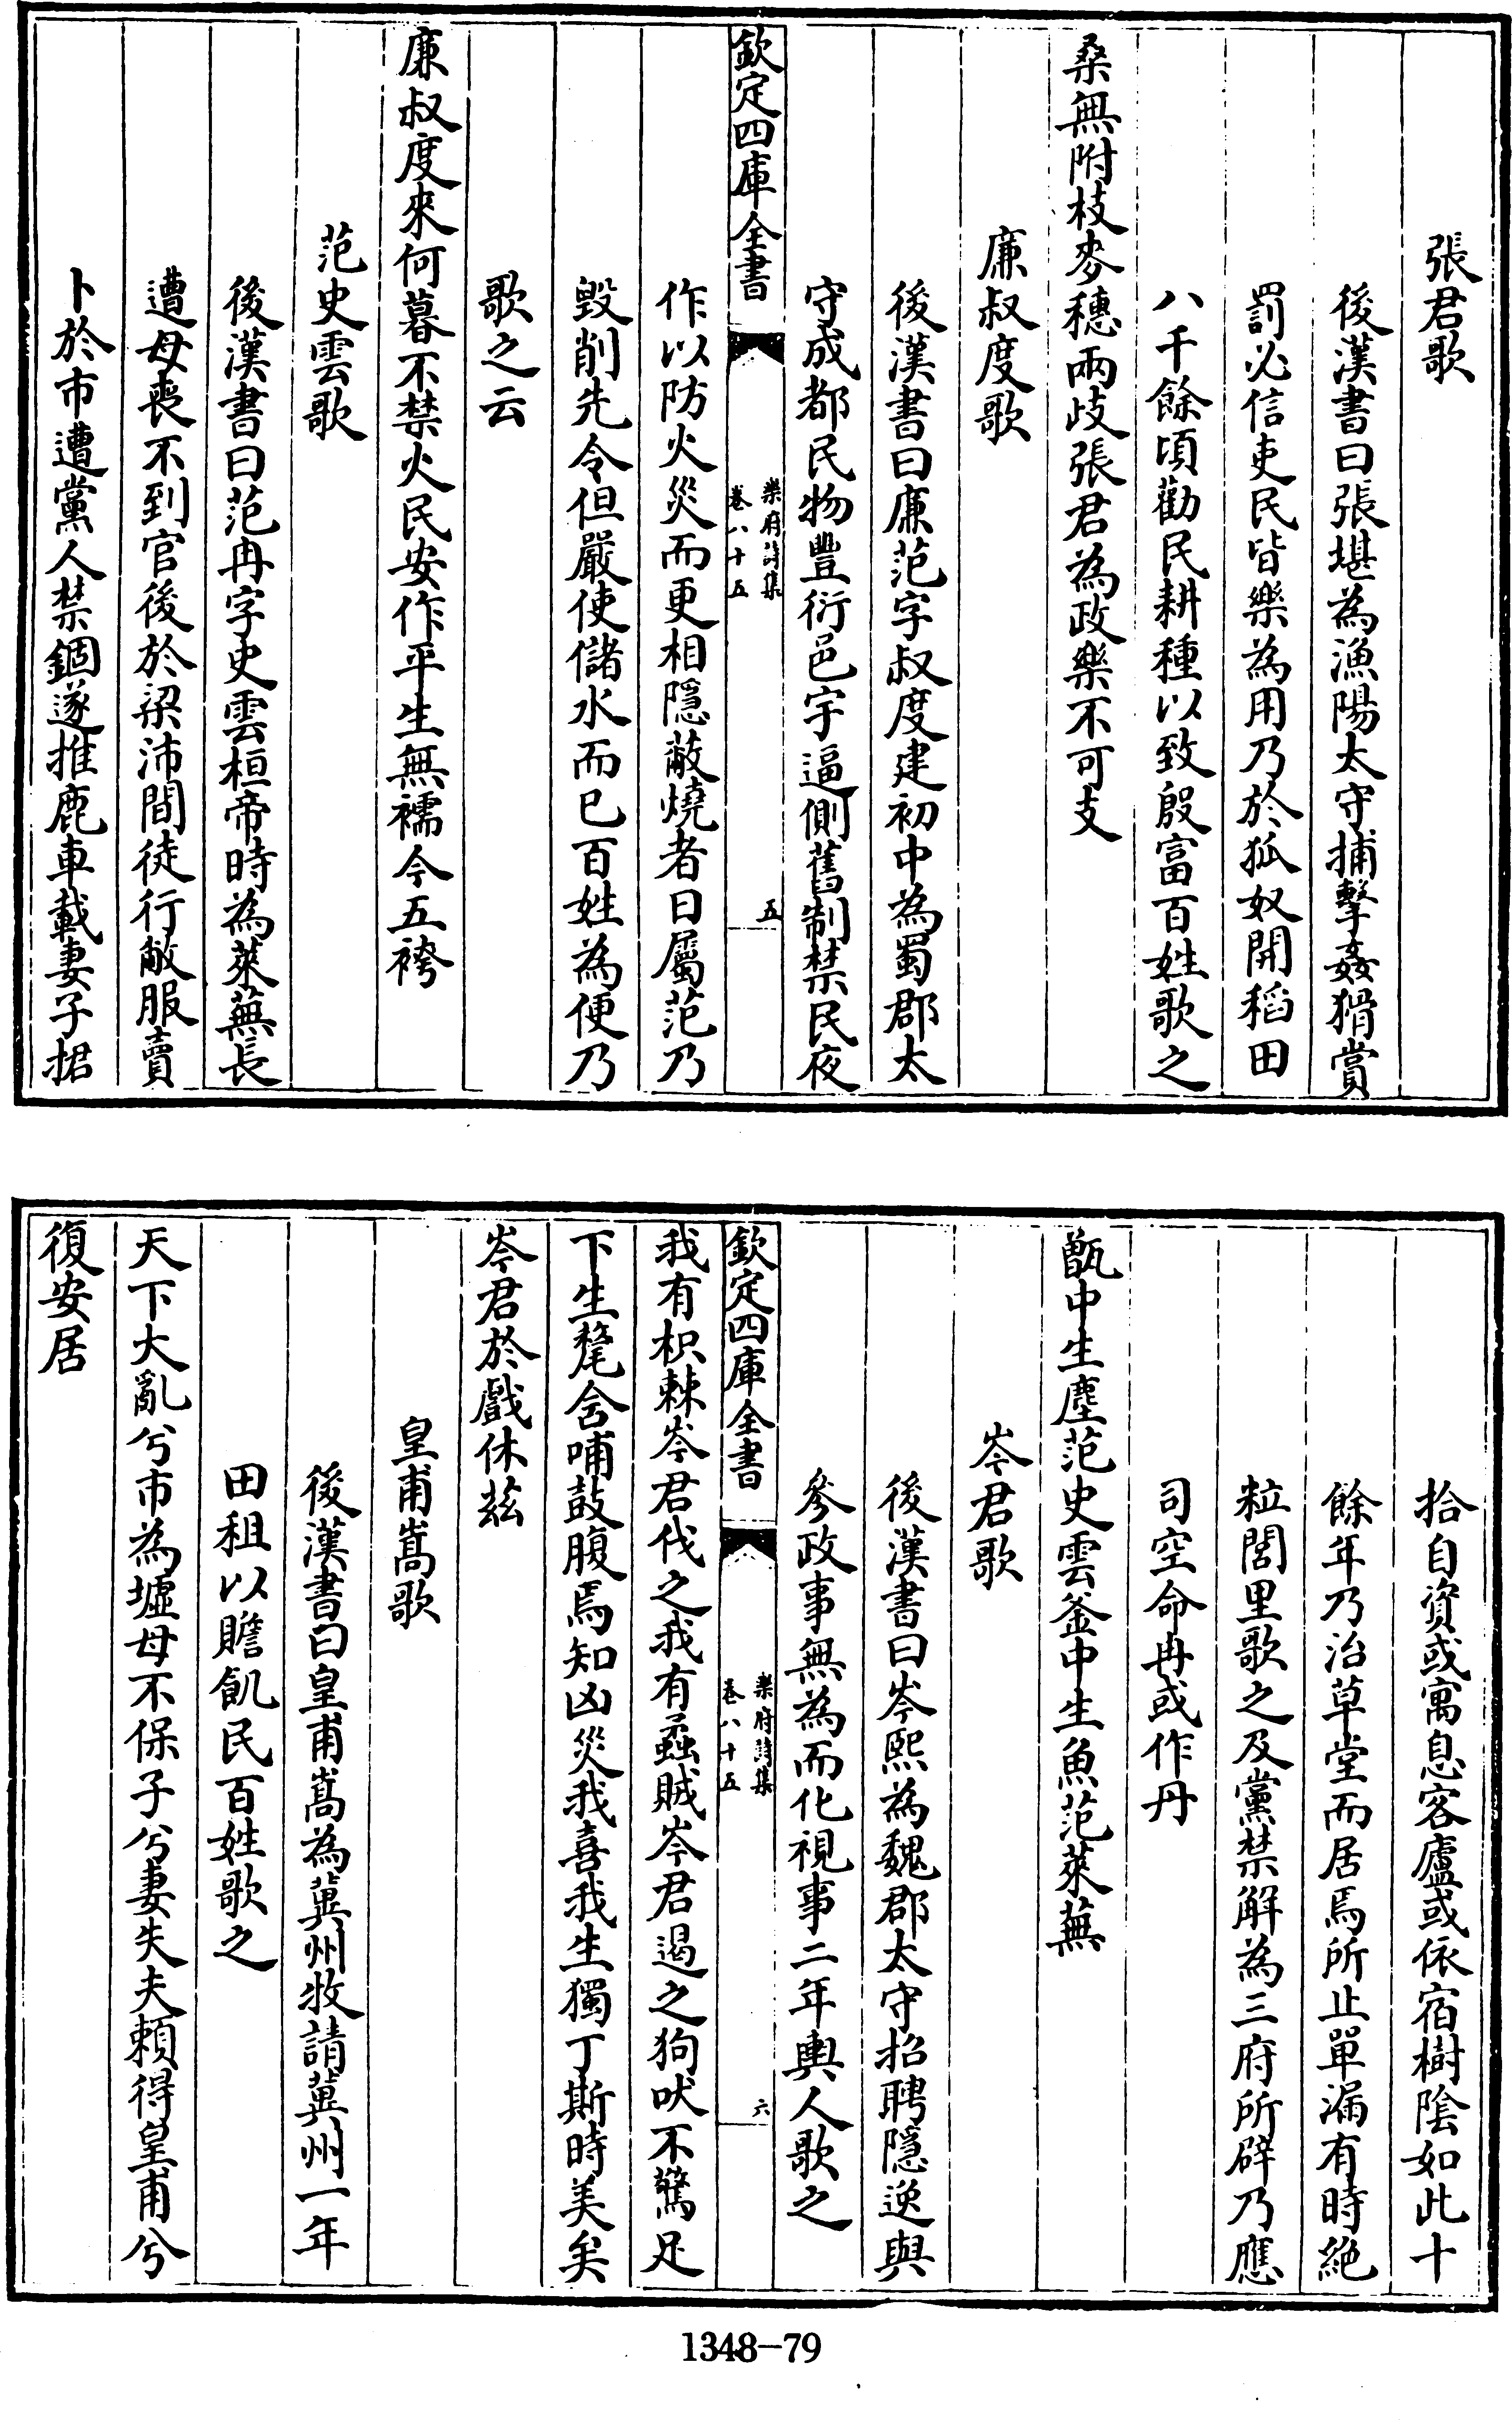 張君歌
後漢書曰張堪為漁陽太守捕擊姦猾賞
罰必信吏民皆樂為用乃於狐奴開稻田
八千餘頃勸民耕種以致殷富百姓歌之
桑無附枝麥穗兩歧張君為政樂不可支
廉叔度歌
後漢書曰廉范字叔度建初中為蜀郡太
守成都民物豐衍邑宇逼側舊制禁民夜
欽定四庫全書
樂府詩集
卷八十五
五
作以防火災而更相隱蔽燒者日屬范乃
毀削先令但嚴使儲水而已百姓為便乃
歌之云
廉叔度來何暮不禁火民安作平生無襦今五袴
范史雲歌
後漢書曰范冉字史雲桓帝時為萊蕪長
遭母喪不到官後於梁沛間徒行敝服賣
卜於市遭黨人禁錮遂推鹿車載妻子捃
拾自資或寓息客廬或依宿樹陰如此十
餘年乃治草堂而居焉所止單漏有時絕
粒閭里歌之及黨禁解為三府所辟乃應
司空命冉或作丹
甑中生塵范史雲釜中生魚范萊蕪
岑君歌
後漢書曰岑熙為魏郡太守招聘隱逸與
參政事無為而化視事二年輿人歌之
欽定四庫全書
樂府詩集
卷八十五
六
我有枳棘岑君伐之我有蟊賊岑君遏之狗吠不驚足
下生氂含哺鼓腹焉知凶災我喜我生獨丁斯時美矣
岑君於戲休茲
皇甫嵩歌
後漢書曰皇甫嵩為冀州牧請冀州一年
田租以贍飢民百姓歌之
天下大亂兮市為墟母不保子兮妻失夫賴得皇甫兮
復安居
1348-79